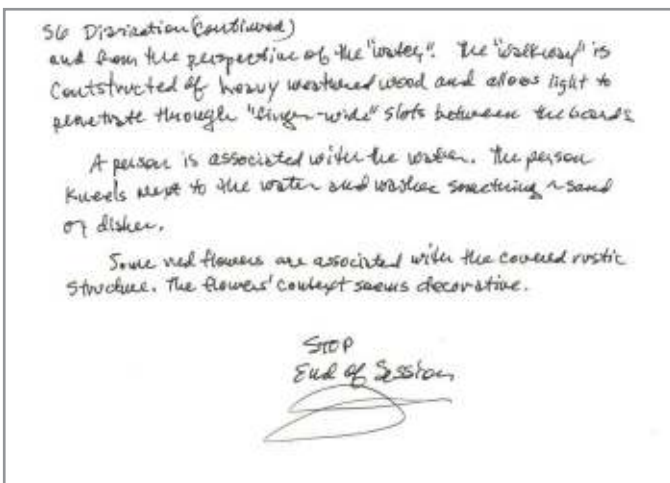 S6 (continued)
and from the perspective of the "water". The "walkway" is
Contstructed of heavy weathered wood and allows light to
penetrate through "finger-wide" slots between the boards
A person is associated with the water. The person
Kneels next to the water and washes something ~ sand
or dishes.
Some red flowers are associated with the covered rustic
Structure. The flowers' context seems decorative.
STOP
End of Session